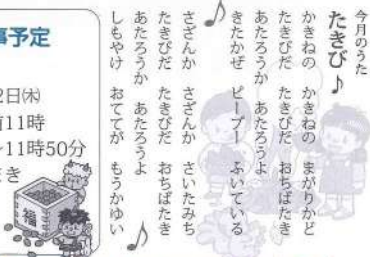 今月のうた
たきび♪
かきねの　かきねの　まがりかど
たきびだ　たきびだ　おちばたき
あたろうか　あたろうよ
きたかぜ　ピープー　ふいている
さざんか　さざんか　さいたみち
たきびだ　たきびだ　おちばたき
あたろうか　あたろうよ
しもやけ　おててが　もうかゆい
事予定
2日㈭
前11時
~11時50分
まき
福